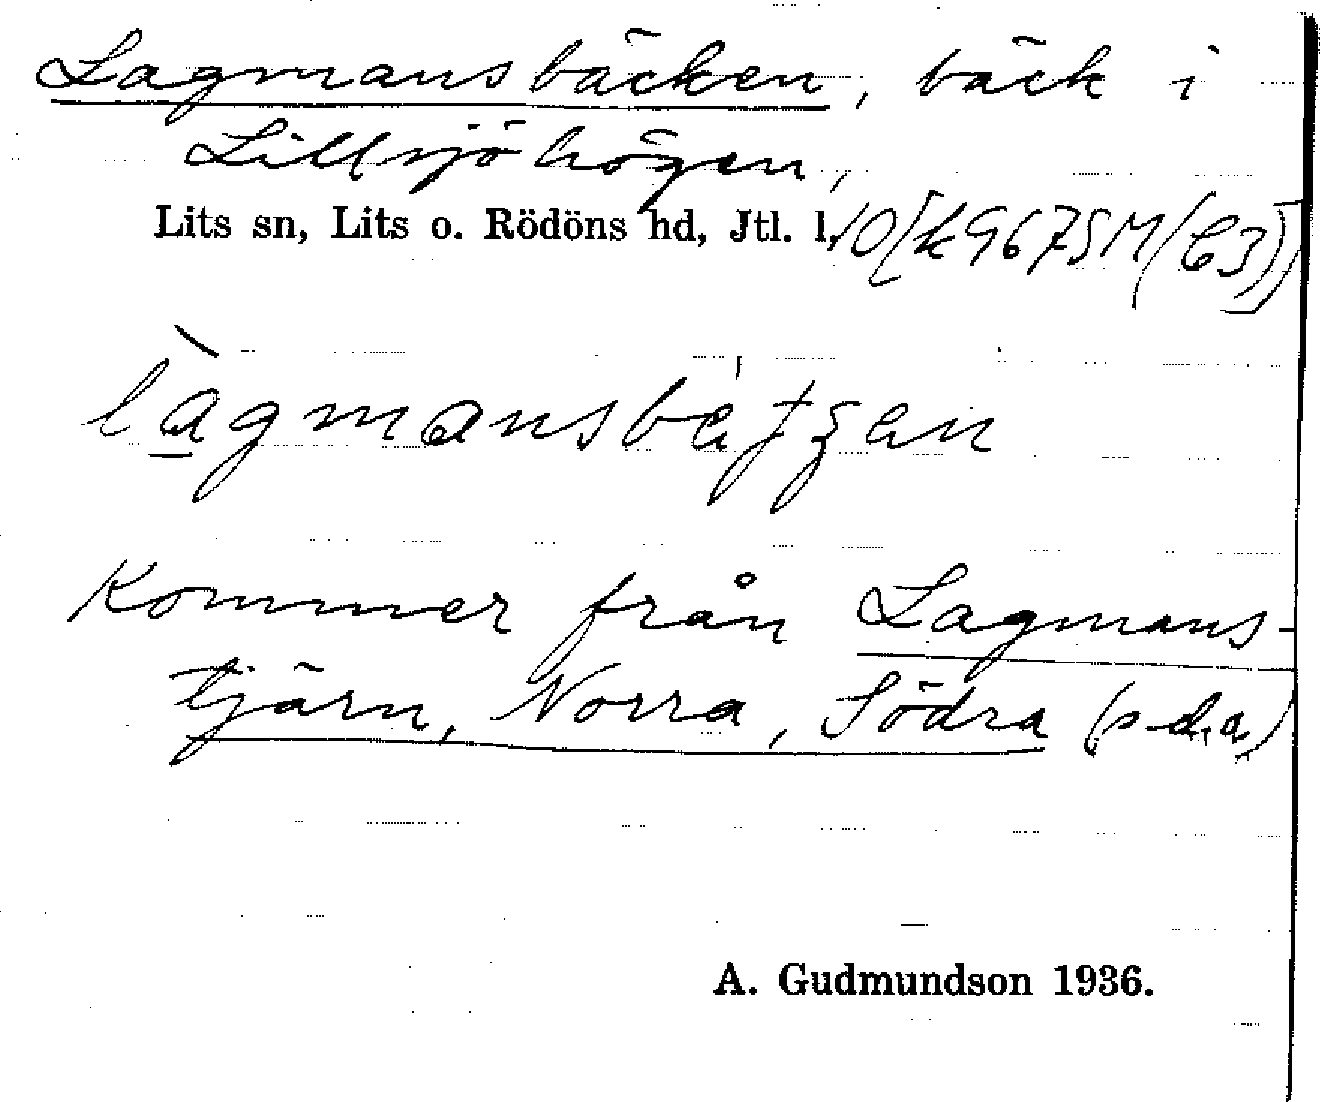 Lagmansbäcken, bäck i
Lillsjöhögen,
Lits sn, Lits o. Rödöns hd, Jtl. l.
Kommer från Lagmans-
tjärn, Norra, Södra (s.d.a)
A. Gudmundson 1936.